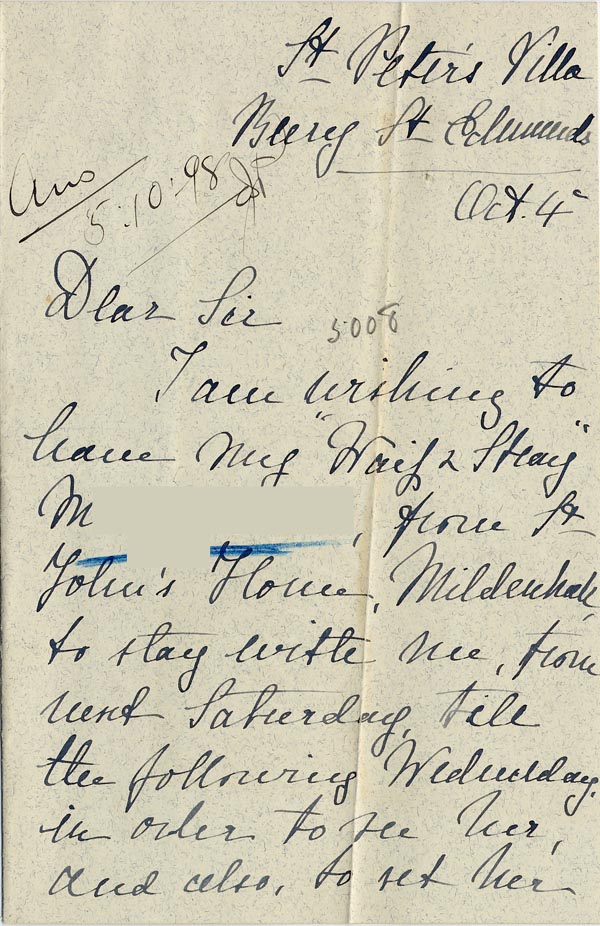 St Peter's Villa
Bury St Edmunds
Oct. 4
Ans
5.10.98
Dear Sir
5008
I am wishing to
have my "Waif & Stray"
M
, from St
John's Home, Mildenhall,
to stay with me, from
next Saturday, till
the following Wednesday,
in order to see her,
and also, to set her